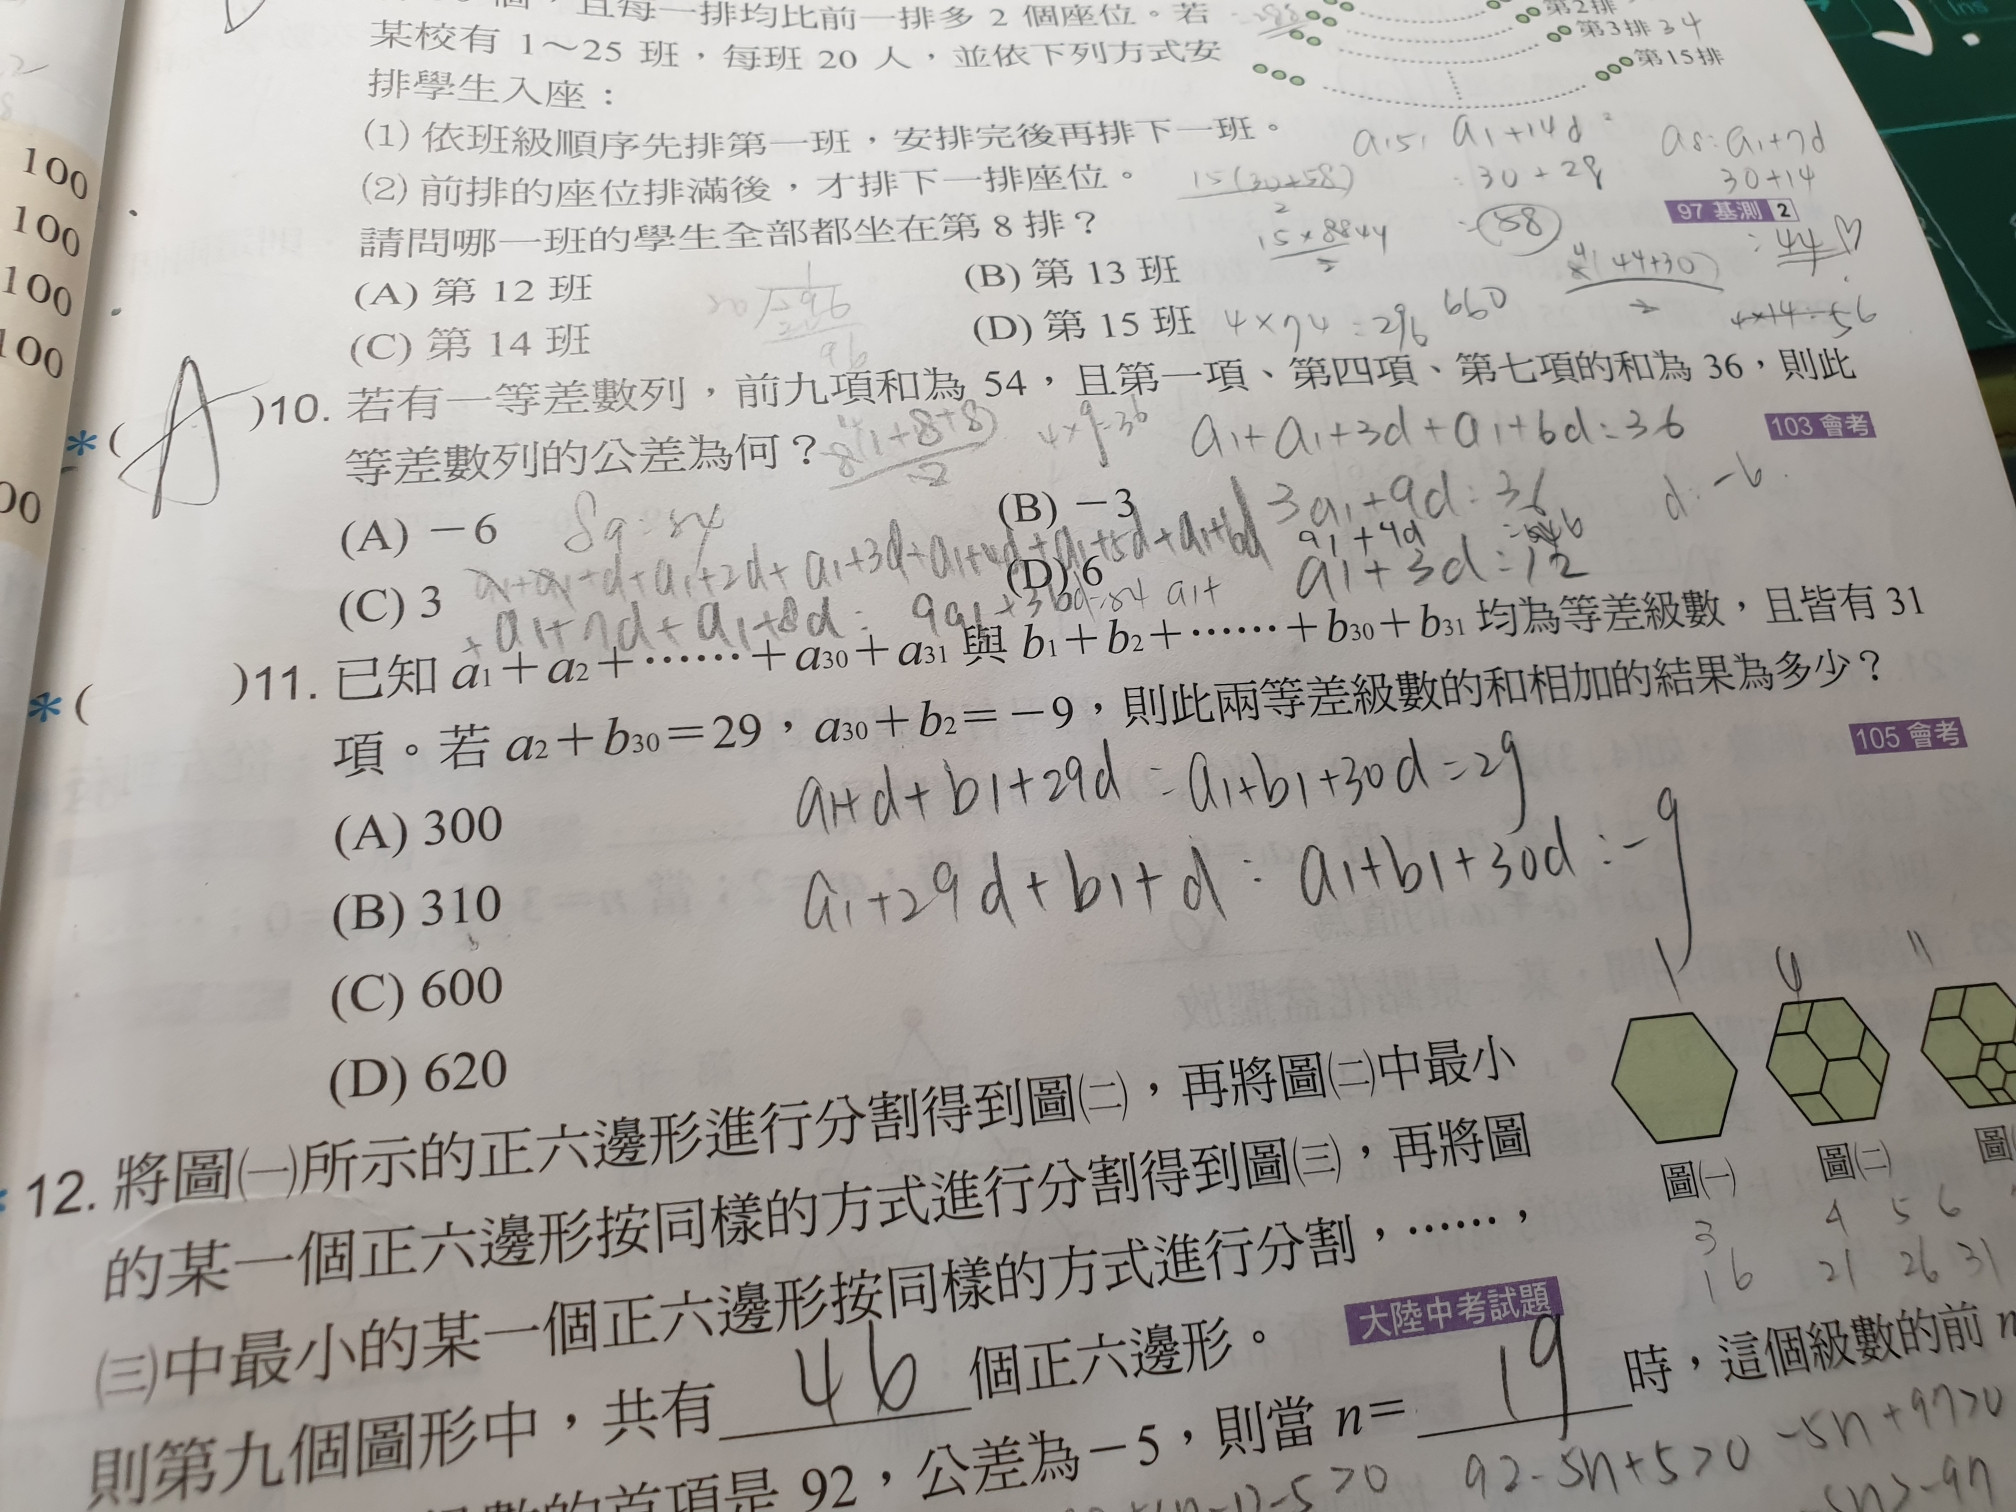 個，且每一排均比前一排多 2 個座位。若
某校有 1～25 班，每班 20 人，並依下列方式安
排學生入座：
第2排
第3排 34
第15排
(1) 依班級順序先排第一班，安排完後再排下一班。
(2) 前排的座位排滿後，才排下一排座位。
請問哪一班的學生全部都坐在第 8 排？
97 基測 2
(A) 第 12 班
(B) 第 13 班
(C) 第 14 班
(D) 第 15 班
a15: a1+14d
=30+28
=58
a8: a1+7d
30+14
=44
15(30+58)
2
15×88 44
2
4(44+30)
2
4×74=296
660
4×14=56
20 296
96
100
100
100
100
00
*( A )10. 若有一等差數列，前九項和為 54，且第一項、第四項、第七項的和為 36，則此
等差數列的公差為何？
103 會考
(A) －6
(B) －3
(C) 3
(D) 6
4×9=36
a1+a1+3d+a1+6d=36
3a1+9d=36
d=-6
a1+4d=6
a1+3d=12
a1+a1+d+a1+2d+a1+3d+a1+4d+a1+5d+a1+6d
+a1+7d+a1+8d=9a1+36d=54
*( )11. 已知 a1＋a2＋……＋a30＋a31 與 b1＋b2＋……＋b30＋b31 均為等差級數，且皆有 31
項。若 a2＋b30＝29，a30＋b2＝－9，則此兩等差級數的和相加的結果為多少？
105 會考
(A) 300
(B) 310
(C) 600
(D) 620
a1+d+b1+29d=a1+b1+30d=29
a1+29d+b1+d=a1+b1+30d=-9
12. 將圖㈠所示的正六邊形進行分割得到圖㈡，再將圖㈡中最小
的某一個正六邊形按同樣的方式進行分割得到圖㈢，再將圖
㈢中最小的某一個正六邊形按同樣的方式進行分割，……，
則第九個圖形中，共有 46 個正六邊形。
大陸中考試題
1
11
圖㈠
圖㈡
圖
3 4 5 6
16 21 26 31
級數的首項是 92，公差為－5，則當 n＝ 19 時，這個級數的前 n
92-5n+5>0
-5n+97>0
-5n>-97